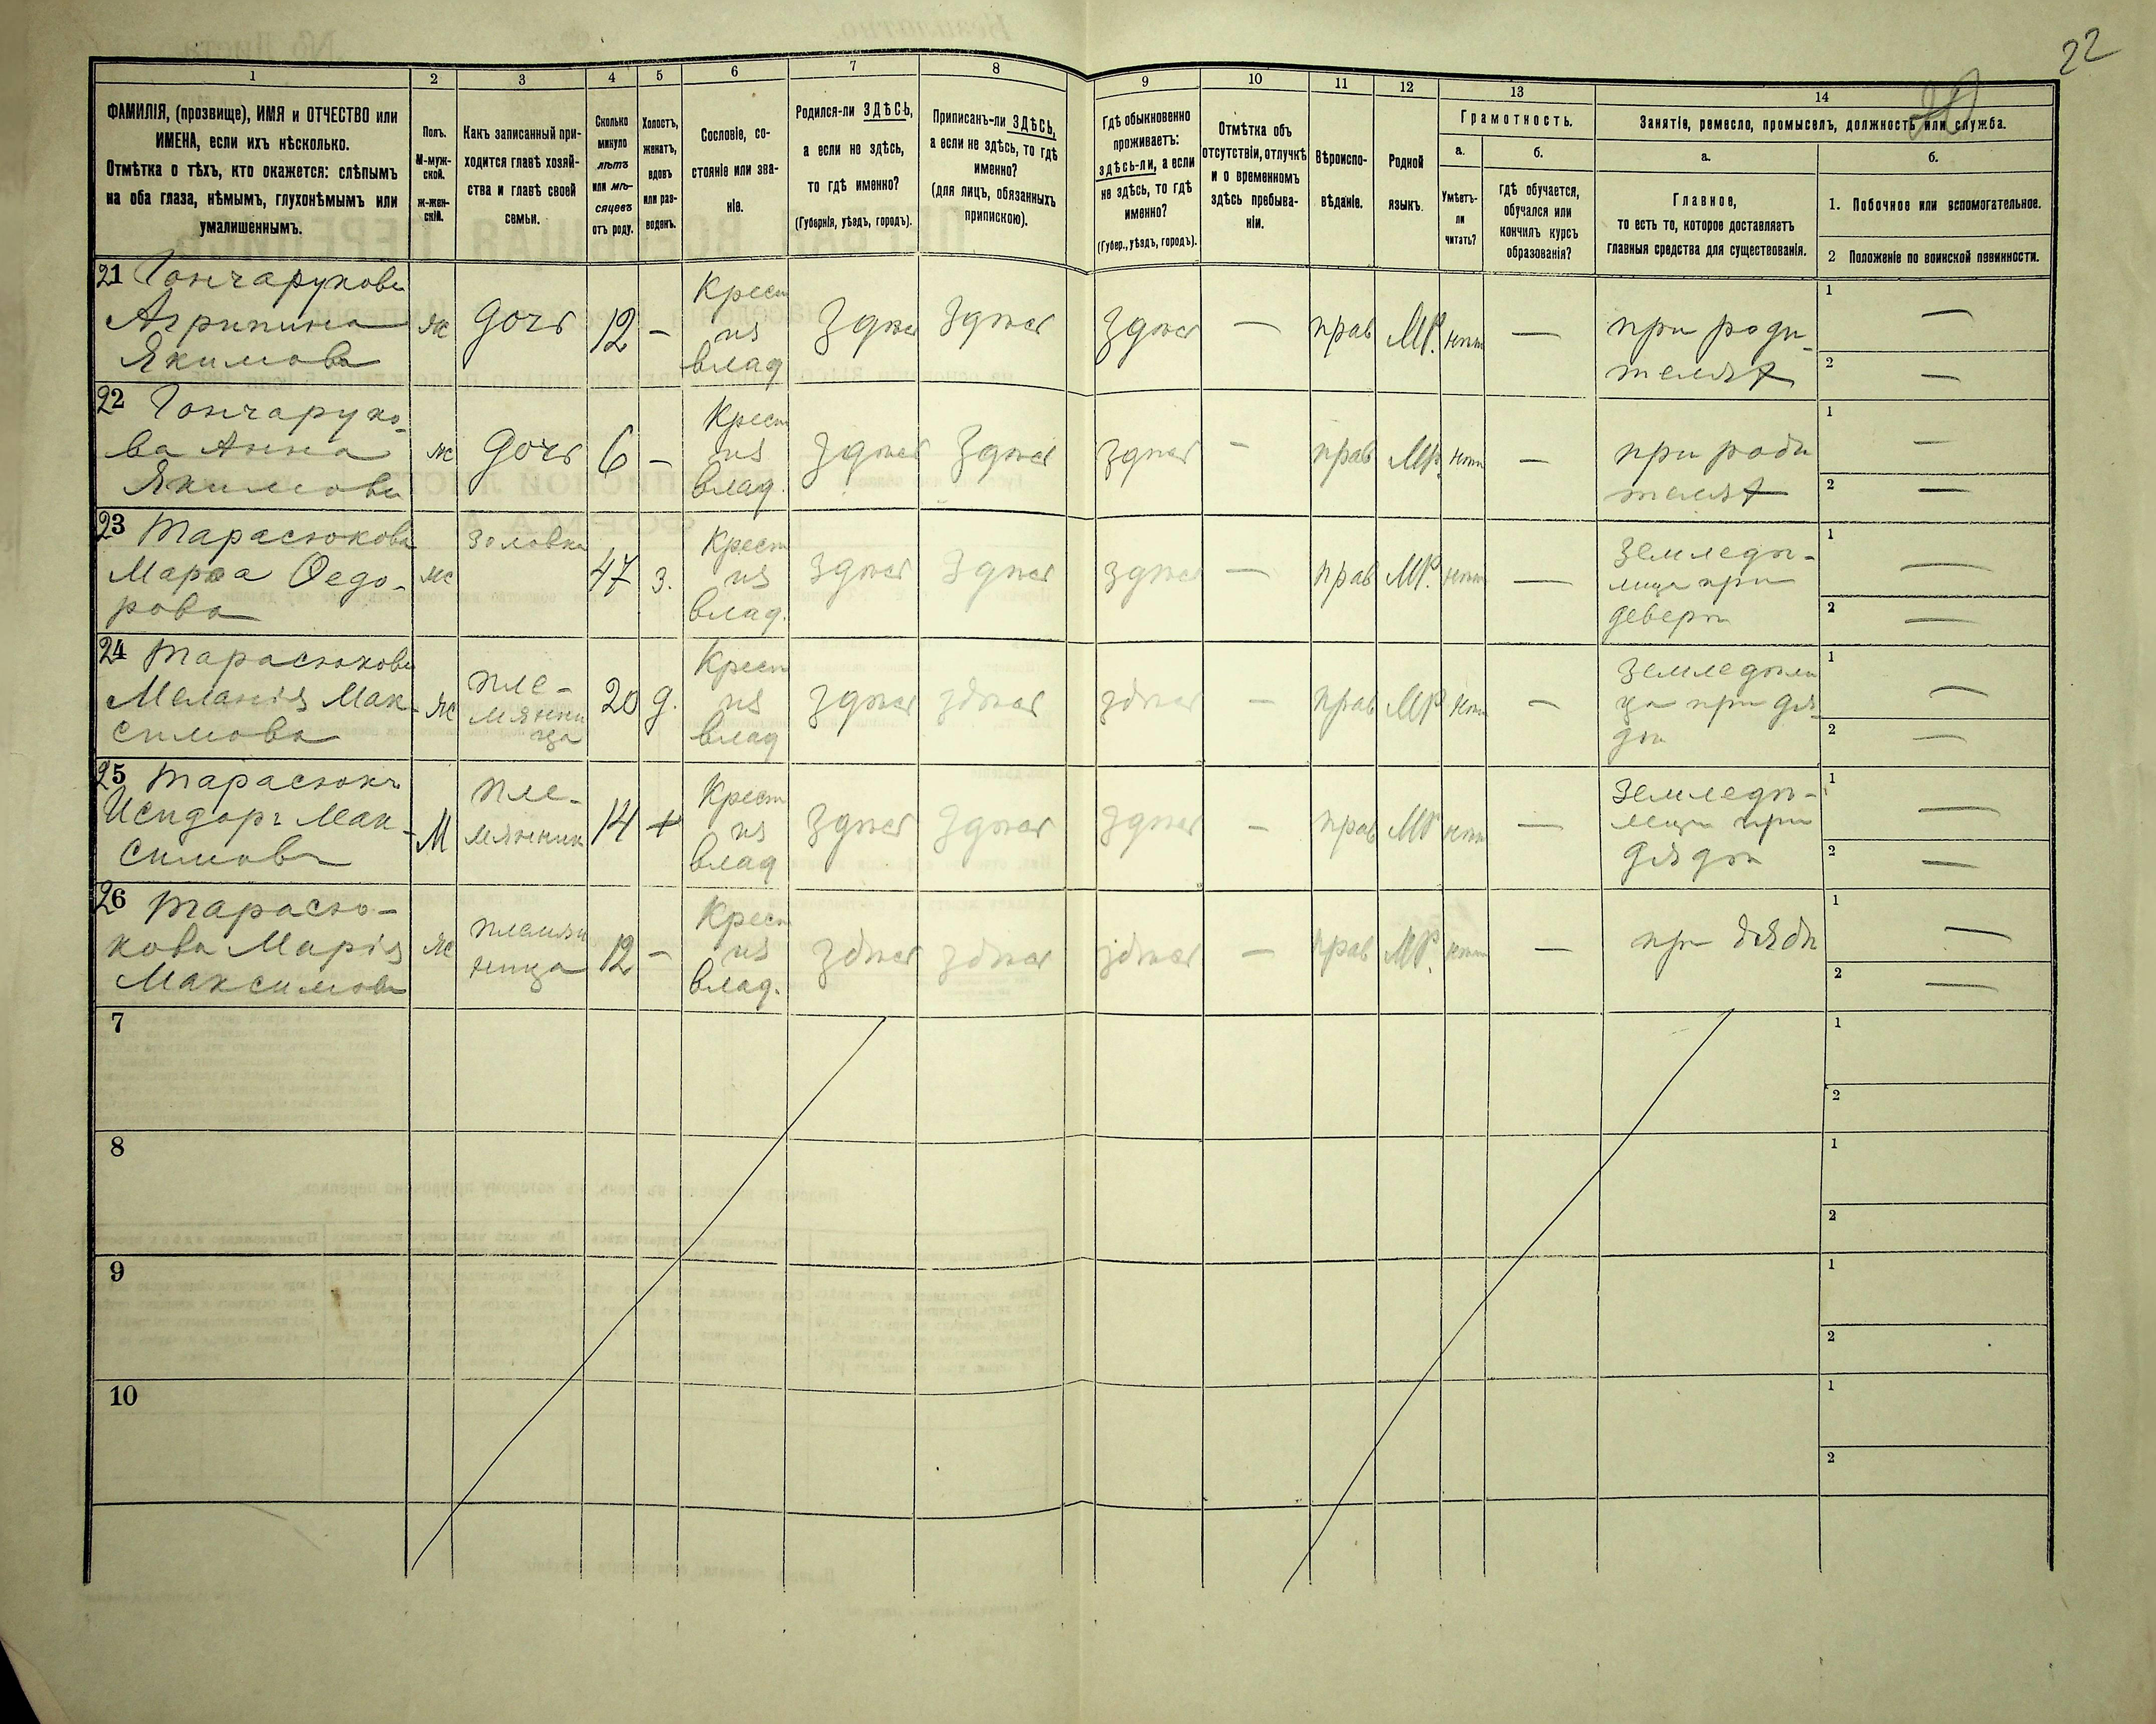 22
1 2 3 4 5 6 7 8 9 10 11 12 13 14
ФАМИЛІЯ, (прозвище), ИМЯ и ОТЧЕСТВО или
ИМЕНА, если ихъ нѣсколько.
Отмѣтка о тѣхъ, кто окажется: слѣпымъ
на оба глаза, нѣмымъ, глухонѣмымъ или
умалишеннымъ.
Полъ.
М-муж-
ской.
ж-жен-
скій.
Какъ записанный при-
ходится главѣ хозяй-
ства и главѣ своей
семьи.
Сколько
минуло
лѣтъ
или мѣ-
сяцевъ
отъ роду.
Холостъ,
женатъ,
вдовъ
или раз-
веденъ.
Сословіе, со-
стояніе или зва-
ніе.
Родился-ли ЗДѢСЬ,
а если не здѣсь,
то гдѣ именно?
(Губернія, уѣздъ, городъ).
Приписанъ-ли ЗДѢСЬ,
а если не здѣсь, то гдѣ
именно?
(для лицъ, обязанныхъ
припискою).
Гдѣ обыкновенно
проживаетъ:
здѣсь-ли, а если
не здѣсь, то гдѣ
именно?
(Губер., уѣздъ, городъ).
Отмѣтка объ
отсутствіи, отлучкѣ
и о временномъ
здѣсь пребыва-
ніи.
Вѣроиспо-
вѣданіе.
Родной
языкъ.
Грамотность.
а.
Умѣетъ-
ли
читать?
б.
гдѣ обучается,
обучался или
кончилъ курсъ
образованія?
Занятіе, ремесло, промыселъ, должность или служба.
а.
Главное,
то есть то, которое доставляетъ
главныя средства для существованія.
б.
1. Побочное или вспомогательное.
2 Положеніе по воинской повинности.
21 Гончарукова
Агрипина
Якимова
ж
дочь
12
—
Крест
из
влад
здѣсь
здѣсь
здѣсь
—
прав
МР.
нѣт
—
при роди-
телях
1 —
2 —
22 Гончаруко-
ва Анна
Якимова
ж
дочь
6
—
Крест
из
влад.
здѣсь
здѣсь
здѣсь
—
прав
МР.
нѣт
—
при роди
телях
1 —
2 —
23 Тарасюкова
Марѳа Ѳедо-
рова
ж
золовка
47
з.
Крест
из
влад.
здѣсь
здѣсь
здѣсь
—
прав
МР.
нѣт
—
Земледѣ-
лица при
деверѣ
1 —
2 —
24 Тарасюкова
Меланія Мак-
симова
ж
пле-
мянни
ца
20
д.
Крест
из
влад
здѣсь
здѣсь
здѣсь
—
прав
МР
нѣт
—
Земледѣли
ца при дя-
дѣ
1 —
2 —
25 Тарасюкъ
Исидоръ Мак-
симовъ
М
пле-
мянник
14
+
Крест
из
влад
здѣсь
здѣсь
здѣсь
—
прав
МР
нѣт
—
Земледѣ-
лец при
дядѣ
1 —
2 —
26 Тарасю-
кова Марія
Максимова
ж
племян
ница
12
—
Крест
из
влад.
здѣсь
здѣсь
здѣсь
—
прав
МР.
нѣт
—
при дядѣ
1 —
2 —
7
1
2
8
1
2
9
1
2
10
1
2